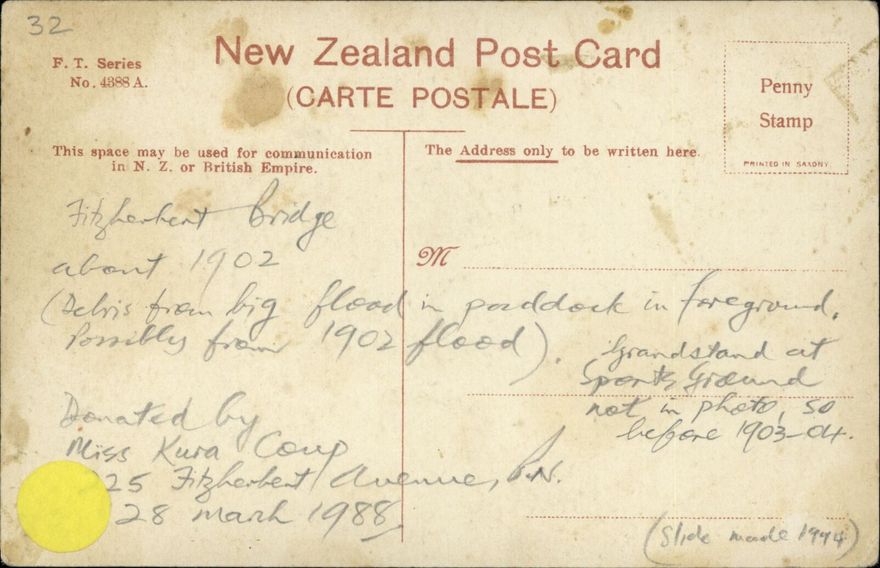 32
F. T. Series
No. 4388 A.
New Zealand Post Card
(CARTE POSTALE)
Penny
Stamp
PRINTED IN SAXONY
This space may be used for communication
in N. Z. or British Empire.
The Address only to be written here.
M
Fitzherbert Bridge
about 1902
(Debris from big flood in paddock in foreground.
Possibly from 1902 flood).
Grandstand at
Sports Ground
not in photo, so
before 1903-04.
Donated by
Miss Kura Coup
25 Fitzherbert Avenue, P.N.
28 March 1988
(Slide made 1994)